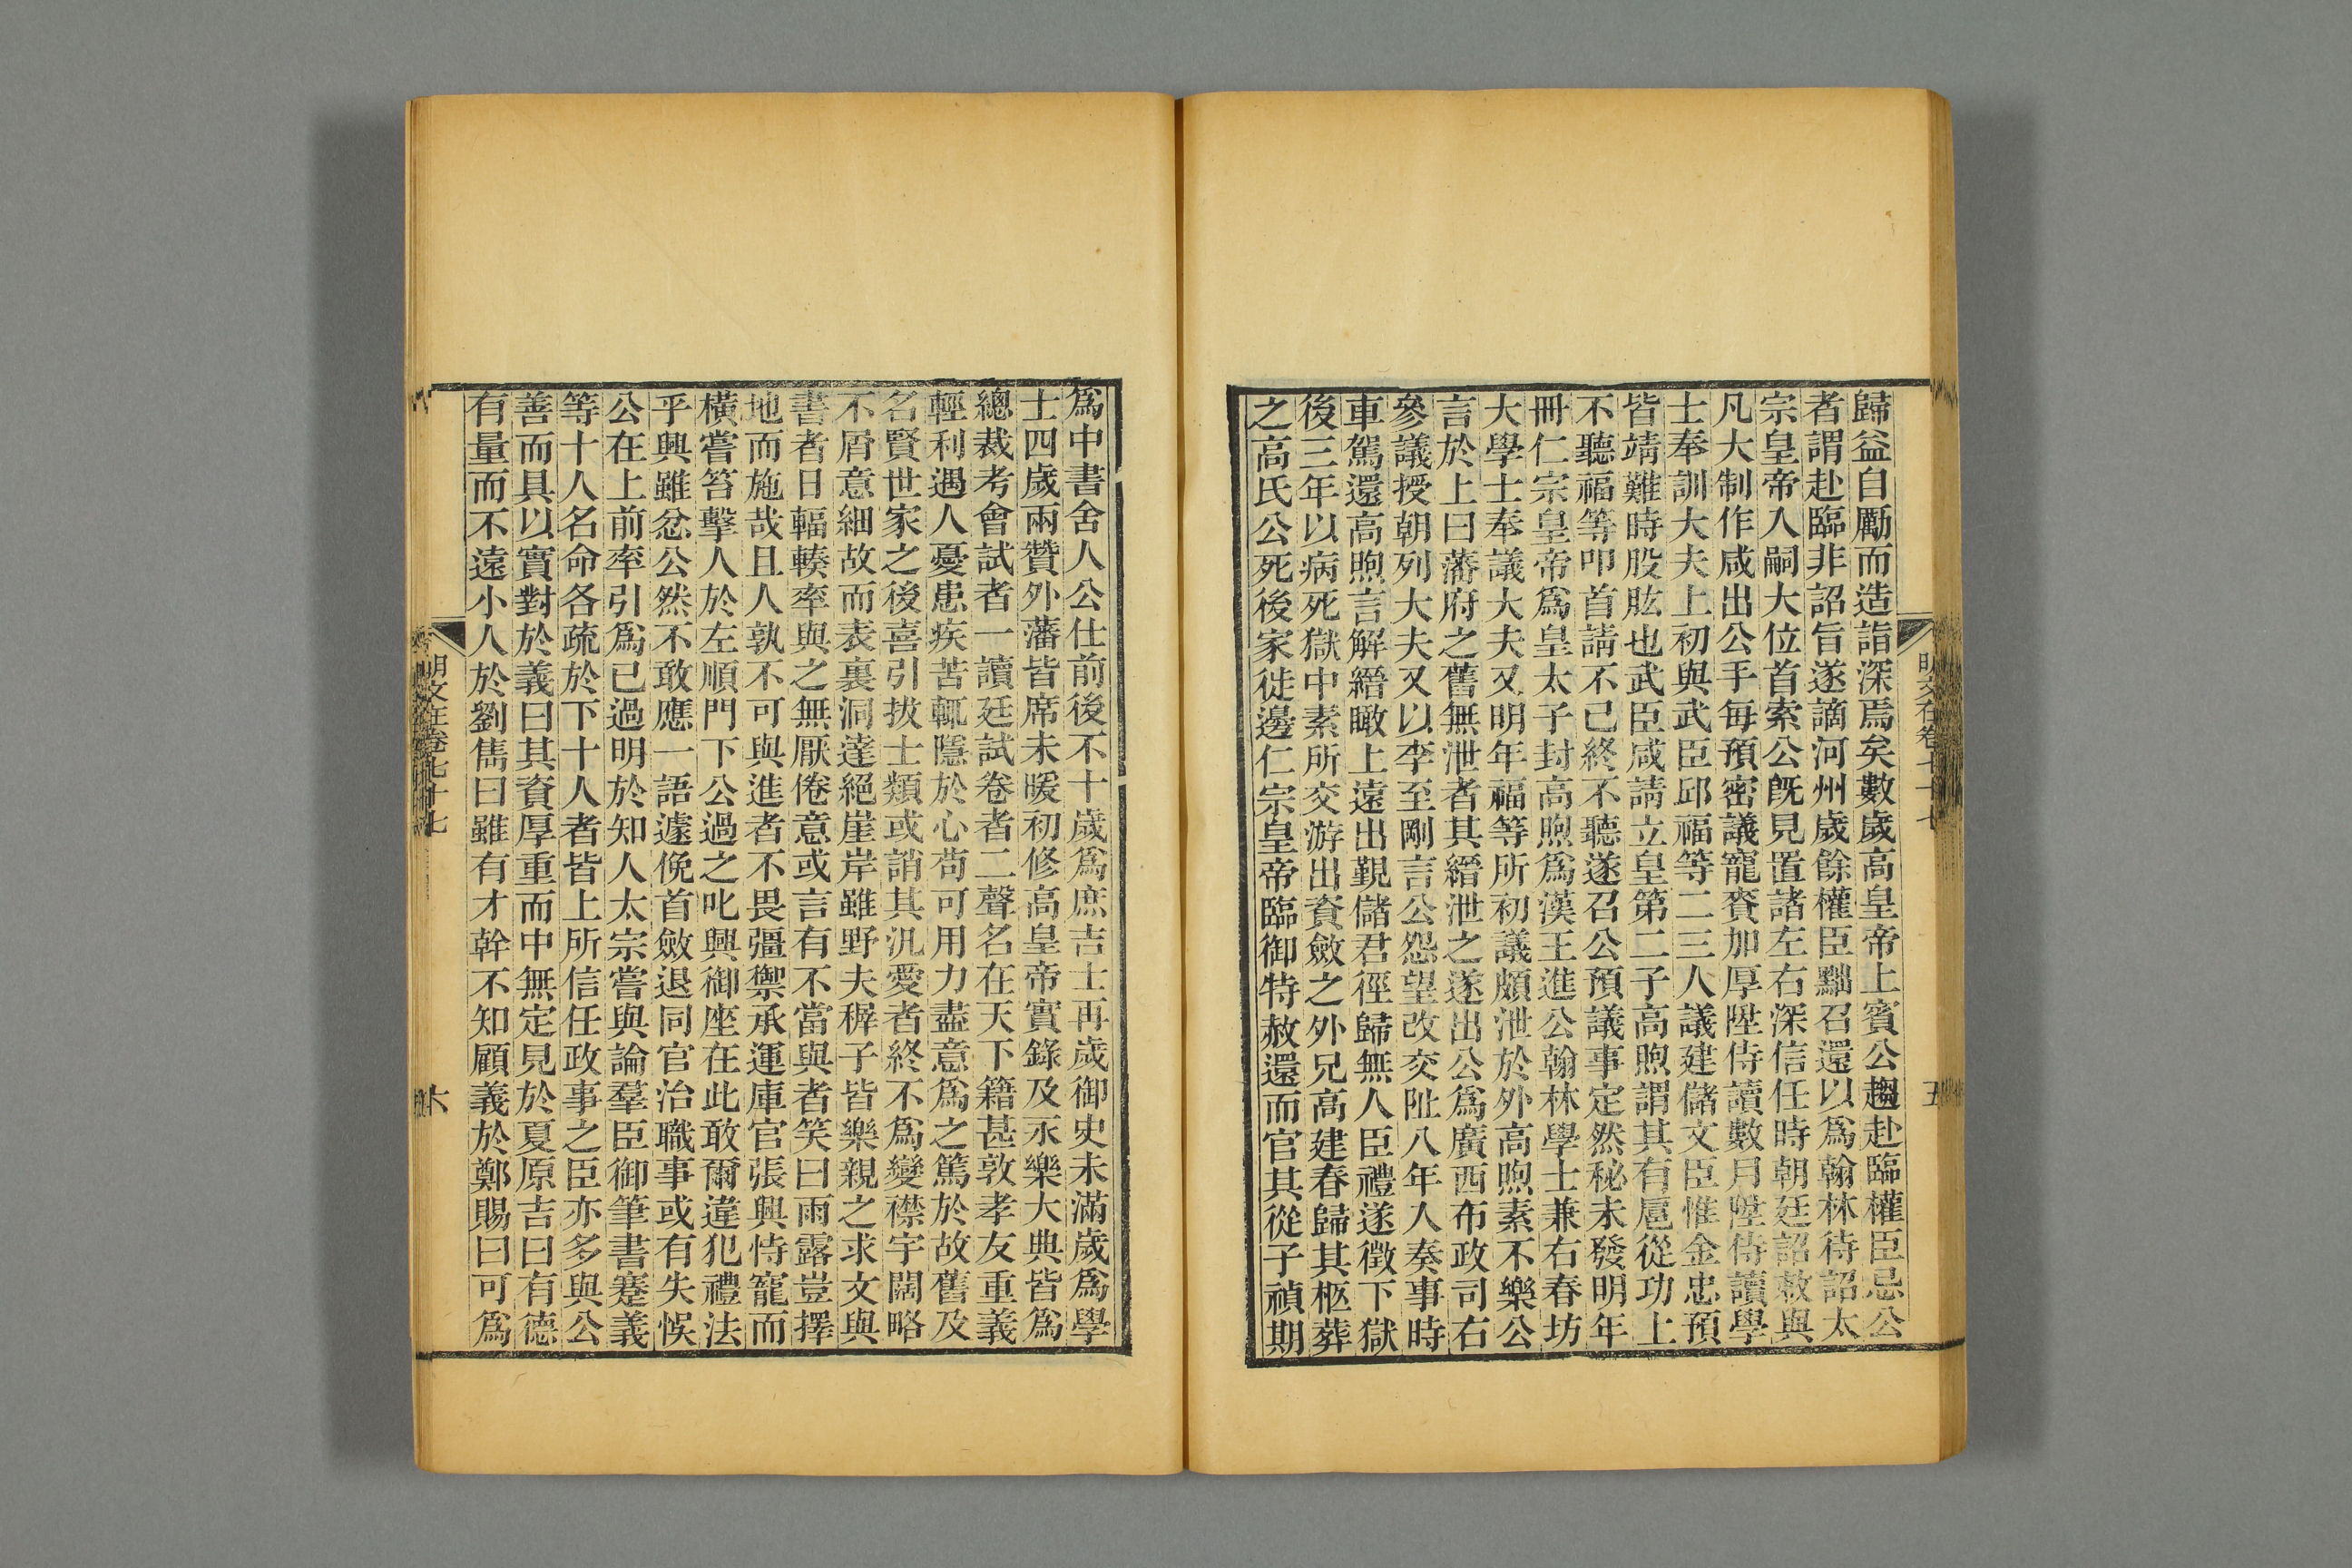 歸益自勵而造詣深焉矣數歲高皇帝上賓公趨赴臨權臣忌公
者謂赴臨非詔旨遂謫河州歲餘權臣黜召還以爲翰林待詔太
宗皇帝入嗣大位首索公旣見置諸左右深信任時朝廷詔敕與
凡大制作咸出公手每預密議寵賚加厚陞侍讀數月陞侍讀學
士奉訓大夫上初與武臣邱福等二三人議建儲文臣惟金忠預
皆靖難時股肱也武臣咸請立皇第二子高煦謂其有扈從功上
不聽福等叩首請不已終不聽遂召公預議事定然秘未發明年
冊仁宗皇帝爲皇太子封高煦爲漢王進公翰林學士兼右春坊
大學士奉議大夫又明年福等所初議頗泄於外高煦素不樂公
言於上曰藩府之舊無泄者其縉泄之遂出公爲廣西布政司右
參議授朝列大夫又以李至剛言公怨望改交阯八年入奏事時
車駕還高煦言解縉瞰上遠出覲儲君徑歸無人臣禮遂徵下獄
後三年以病死獄中素所交游出資斂之外兄高建春歸其柩葬
之高氏公死後家徙邊仁宗皇帝臨御特赦還而官其從子禎期
明文在卷七十七
五
爲中書舍人公仕前後不十歲爲庶吉士再歲御史未滿歲爲學
士四歲兩贊外藩皆席未暖初修高皇帝實錄及永樂大典皆爲
總裁考會試者一讀廷試卷者二聲名在天下籍甚敦孝友重義
輕利遇人憂患疾苦輒隱於心苟可用力盡意爲之篤於故舊及
名賢世家之後喜引拔士類或誚其汎愛者終不爲變襟宇闊略
不屑意細故而表裏洞達絕崖岸雖野夫穉子皆樂親之求文與
書者日輻輳率與之無厭倦意或言有不當與者笑曰雨露豈擇
地而施哉且人孰不可與進者不畏彊禦承運庫官張興恃寵而
橫嘗笞擊人於左順門下公過之叱興御座在此敢爾違犯禮法
乎興雖忿公然不敢應一語遽俛首斂退同官治職事或有失悞
公在上前率引爲已過明於知人太宗嘗與論羣臣御筆書蹇義
等十人名命各疏於下十人者皆上所信任政事之臣亦多與公
善而具以實對於義曰其資厚重而中無定見於夏原吉曰有德
有量而不遠小人於劉儁曰雖有才幹不知顧義於鄭賜曰可爲
明文在卷七十七
六